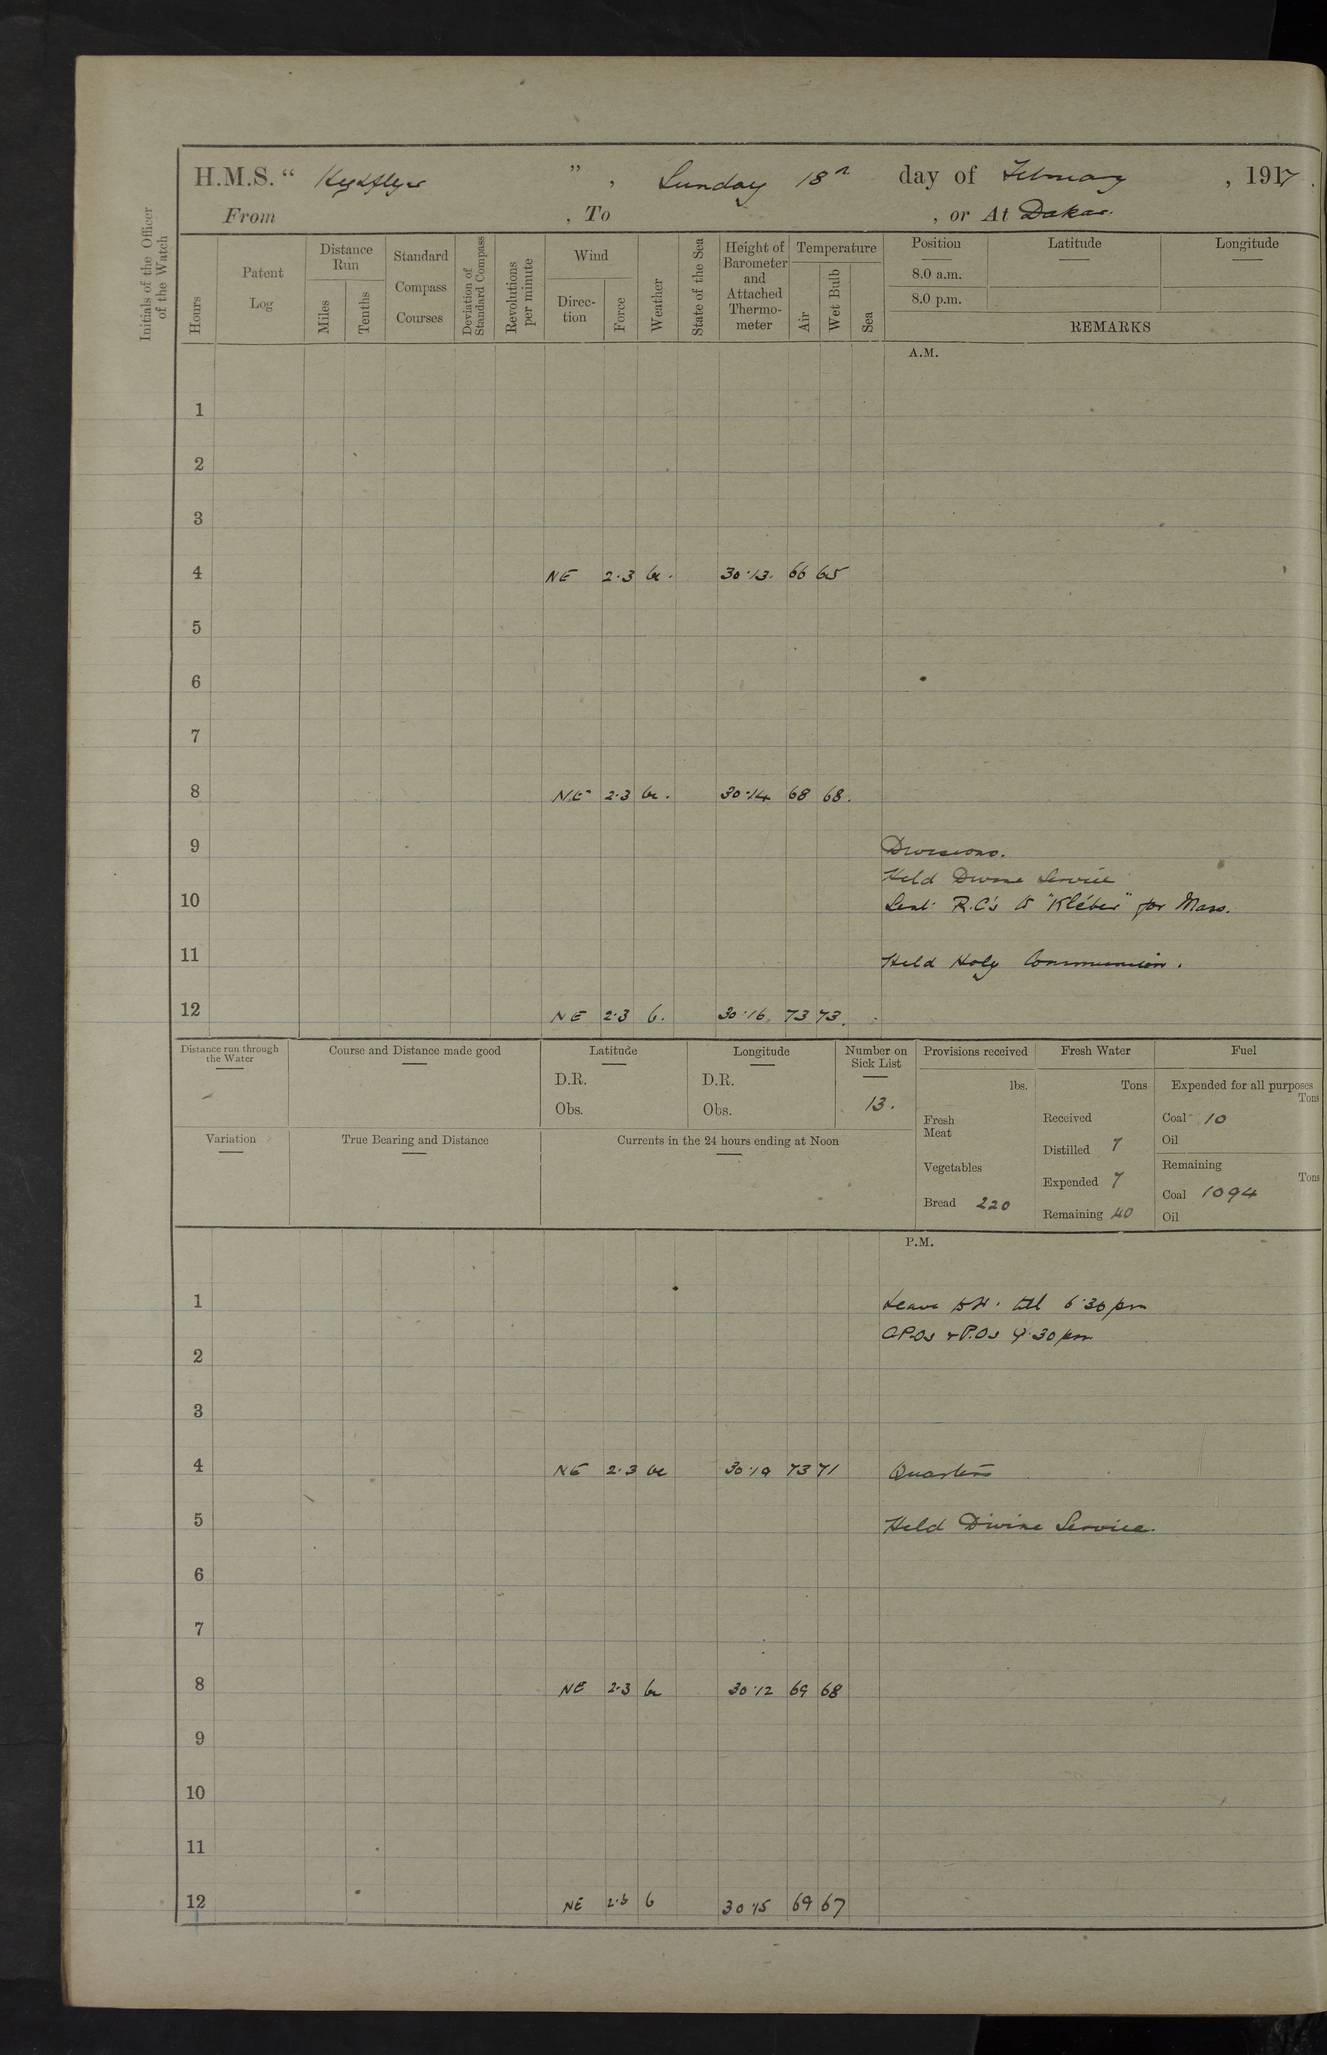 H.M.S. “ Highflyer ” , Sunday 18th day of February , 1917.
From , To , or At Dakar.
Initials of the Officer of the Watch
Hours
Patent Log
Distance Run
Miles
Tenths
Standard Compass Courses
Deviation of Standard Compass
Revolutions per minute
Wind
Direction
Force
Weather
State of the Sea
Height of Barometer and Attached Thermometer
Temperature
Air
Wet Bulb
Sea
Position Latitude Longitude
8.0 a.m.
8.0 p.m.
REMARKS
A.M.
1
2
3
4 NE 2.3 bc. 30.13. 66 65
5
6
7
8 NE 2.3 bc. 30.14 68 68.
9 Divisions.
Held Divine Service
10 Sent R.C's to "Kléber" for Mass.
11 Held Holy Communion.
12 NE 2.3 b. 30.16 73 73.
Distance run through the Water
Course and Distance made good
Latitude
D.R.
Obs.
Longitude
D.R.
Obs.
Number on Sick List
13.
Variation
True Bearing and Distance
Currents in the 24 hours ending at Noon
Provisions received
lbs.
Fresh Meat
Vegetables
Bread 220
Fresh Water
Tons
Received
Distilled 7
Expended 7
Remaining 40
Fuel
Expended for all purposes
Tons
Coal 10
Oil
Remaining
Tons
Coal 1094
Oil
P.M.
1 Leave to W. till 6.30 pm
C.P.Os & P.Os 9.30 pm
2
3
4 NE 2.3 bc 30.19 73 71 Quarters
5 Held Divine Service.
6
7
8 NE 2.3 bc 30.12 69 68
9
10
11
12 NE 2.3 b 30.15 69 67